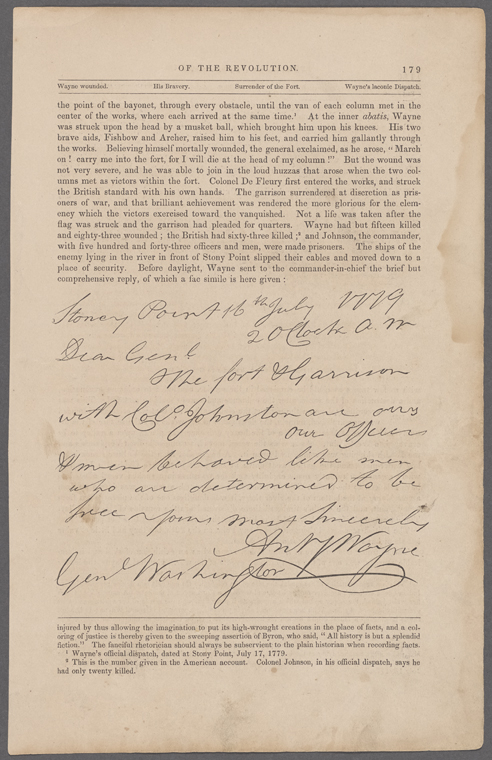 OF THE REVOLUTION. 179
Wayne wounded. His Bravery. Surrender of the Fort. Wayne's laconic Dispatch.
the point of the bayonet, through every obstacle, until the van of each column met in the
center of the works, where each arrived at the same time.¹ At the inner abatis, Wayne
was struck upon the head by a musket ball, which brought him upon his knees. His two
brave aids, Fishbow and Archer, raised him to his feet, and carried him gallantly through
the works. Believing himself mortally wounded, the general exclaimed, as he arose, "March
on! carry me into the fort, for I will die at the head of my column!" But the wound was
not very severe, and he was able to join in the loud huzzas that arose when the two col-
umns met as victors within the fort. Colonel De Fleury first entered the works, and struck
the British standard with his own hands. The garrison surrendered at discretion as pris-
oners of war, and that brilliant achievement was rendered the more glorious for the clem-
ency which the victors exercised toward the vanquished. Not a life was taken after the
flag was struck and the garrison had pleaded for quarters. Wayne had but fifteen killed
and eighty-three wounded; the British had sixty-three killed;² and Johnson, the commander,
with five hundred and forty-three officers and men, were made prisoners. The ships of the
enemy lying in the river in front of Stony Point slipped their cables and moved down to a
place of security. Before daylight, Wayne sent to the commander-in-chief the brief but
comprehensive reply, of which a fac simile is here given:
Stoney Point 16th July 1779
2 OClock A.M
Dear Genl
The fort & Garrison
with Colo. Johnston are ours
our Officers
& men behaved like men
who are determined to be
free Yours most Sincerely
Anty Wayne
Genl Washington
injured by thus allowing the imagination to put its high-wrought creations in the place of facts, and a col-
oring of justice is thereby given to the sweeping assertion of Byron, who said, "All history is but a splendid
fiction." The fanciful rhetorician should always be subservient to the plain historian when recording facts.
¹ Wayne's official dispatch, dated at Stony Point, July 17, 1779.
² This is the number given in the American account. Colonel Johnson, in his official dispatch, says he
had only twenty killed.